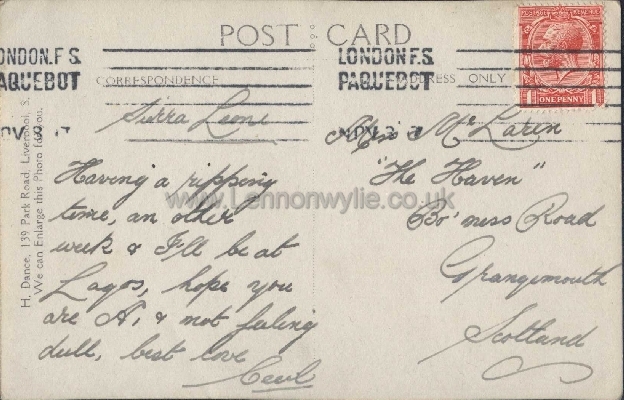 POST CARD
LONDON.F.S.
PAQUEBOT
LONDON F.S.
PAQUEBOT
CORRESPONDENCE
ADDRESS ONLY
ONE PENNY
NOV 3 17
NOV 3 17
H. Dance, 139 Park Road, Liverpool, S.
We can Enlarge this Photo for you.
Sierra Leone
Having a ripping
time, an other
week & I'll be at
Lagos, hope you
are A1, & not feeling
dull, best love
Cecil
Mc Laren
"The Haven"
Bo'ness Road
Grangemouth
Scotland
www.Lennonwylie.co.uk